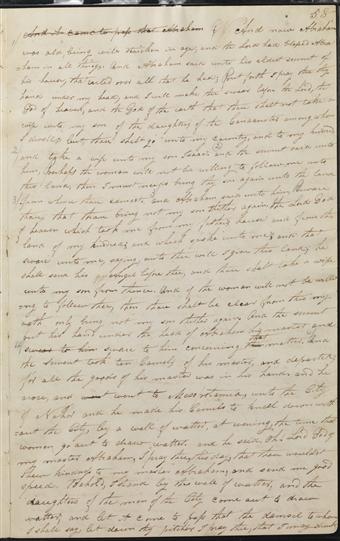 58
And it came to pass that Abraham And now Abraham
was old, being well stricken in age, and the Lord had blessed Abra
ham in all things. And Abraham said unto his eldest servant of
his house, that ruled over all that he had, Put forth I pray thee thy
hand under my hand, and I will make thee swear before the Lord, the
God of heaven, and the God of the earth that thou shalt not take a
wife unto my son of the daughters of the Canaanites among whom
I dwell; but thou shalt go unto my country, and to my kindred
and take a wife unto my son Isaac. And the servant said unto
him, Perhaps the woman will not be willing to follow me unto
this land; then I must needs bring thy son again unto the land
from whence thou camest. And Abraham said unto him, Beware
thou, that thou bring not my son thither again. The Lord God
of heaven which took me from my father's house and from the
land of my kindred, and which spake unto me, and that
sware unto me, saying, unto thee will I give this land; he
shall send his angel before thee, and thou shalt take a wife
unto my son from thence. And if the woman will not be willi
ng to follow thee, then thou shalt be clear from this my
oath only bring not my son thither again. And the servant
put his hand under the hand of Abraham his master, and
sware to him sware to him concerning that matter. And
the servant took ten Camels, of his master, and departed,
for all the goods of his master was in his hand; and he
arose, and went went to Mesopotamia, unto the City
of Nahor and he made his Camels to kneel down with
out the City, by a well of water, at evening, the time that
women go out to draw water. and he said, Oh Lord God of
my master Abraham, I pray thee, this day, that thou wouldst
shew kindness to my master Abraham; and send me good
speed. Behold, I stand by this well of water, and the
daughters of the men of the City come out to draw
water; and let it come to pass that the damsel to whom
I shall say, let down thy pitcher I pray thee, that I may drink